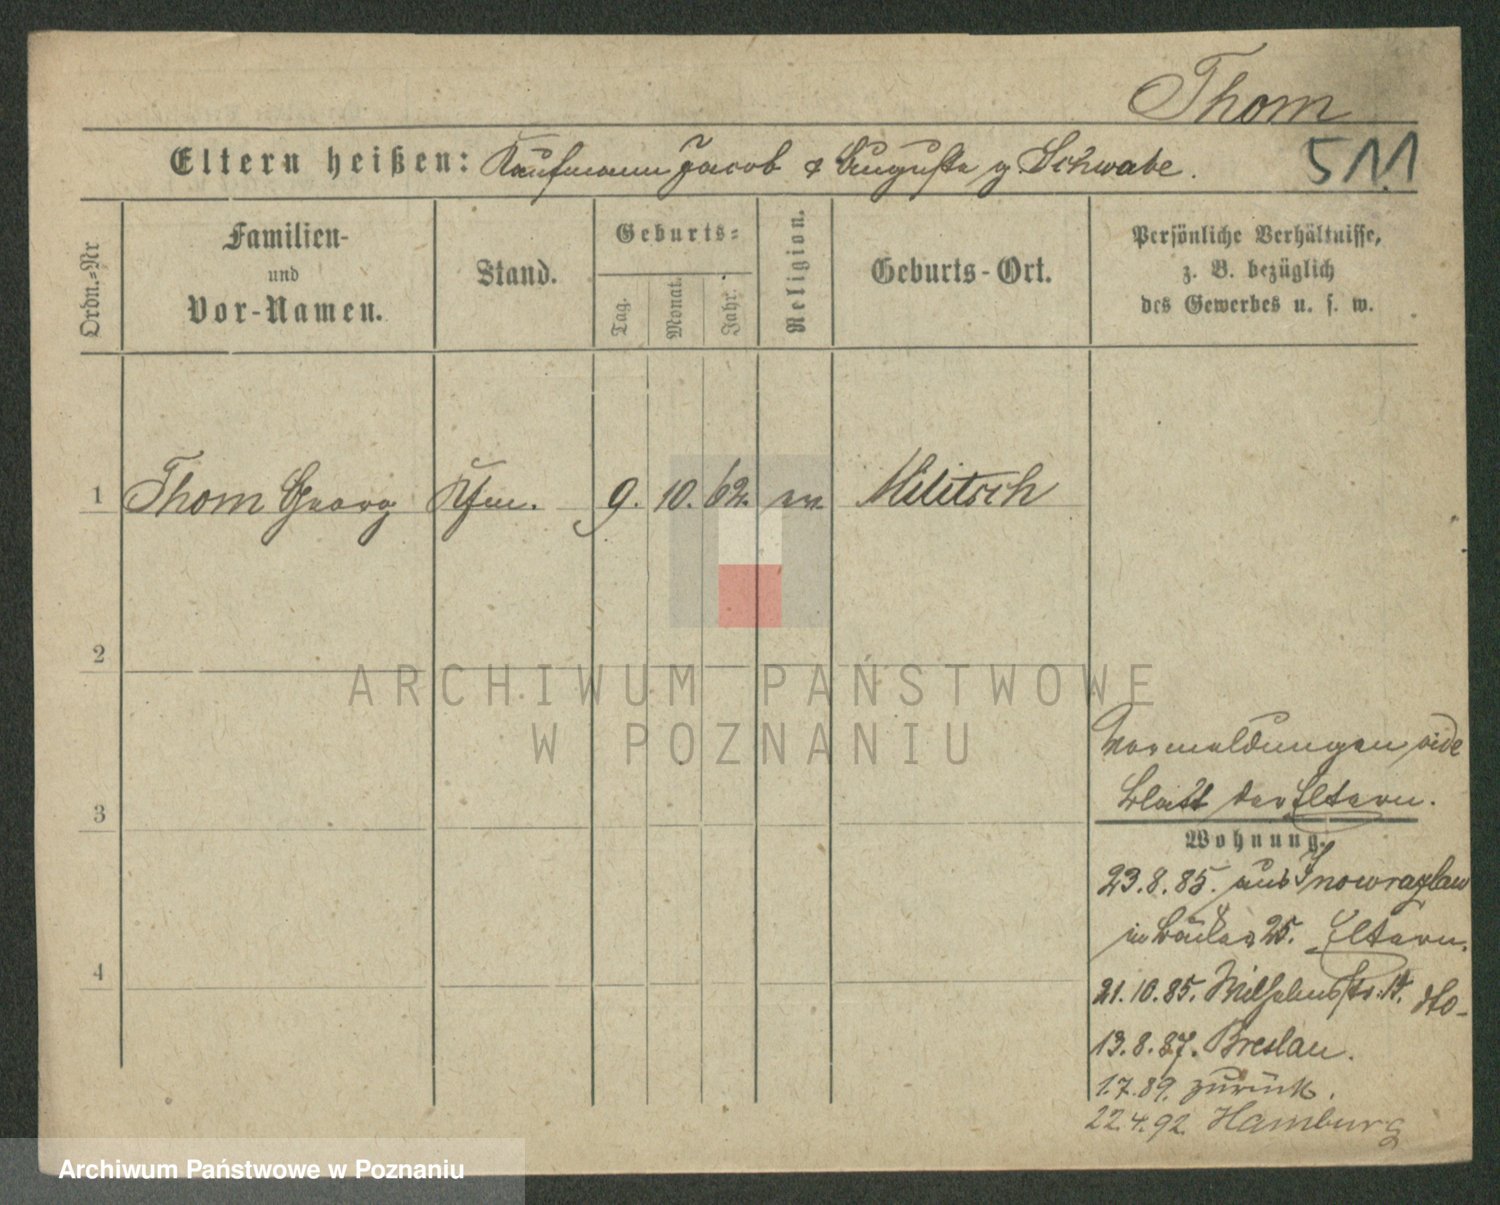 Thom
Eltern heißen: Kaufmann Jacob & Auguste g Schwabe.
511
Ordn.=Nr
Familien-
und
Vor-Namen.
Stand.
Geburts=
Tag.
Monat.
Jahr.
Religion.
Geburts-Ort.
Persönliche Verhältnisse,
z. B. bezüglich
des Gewerbes u. s. w.
1 Thom Georg Kfm. 9. 10. 62. ev. Militsch
2
ARCHIWUM PAŃSTWOWE
W POZNANIU
Vormeldungen vide
3
Blatt der Eltern.
Wohnung.
23.8.85. aus Inowrazlaw
in 25. Eltern.
4
21.10.85. Wilhelmstr. dto-
13.8.87. Breslau.
1.7.89. zurück.
22.4.92. Hamburg
Archiwum Państwowe w Poznaniu